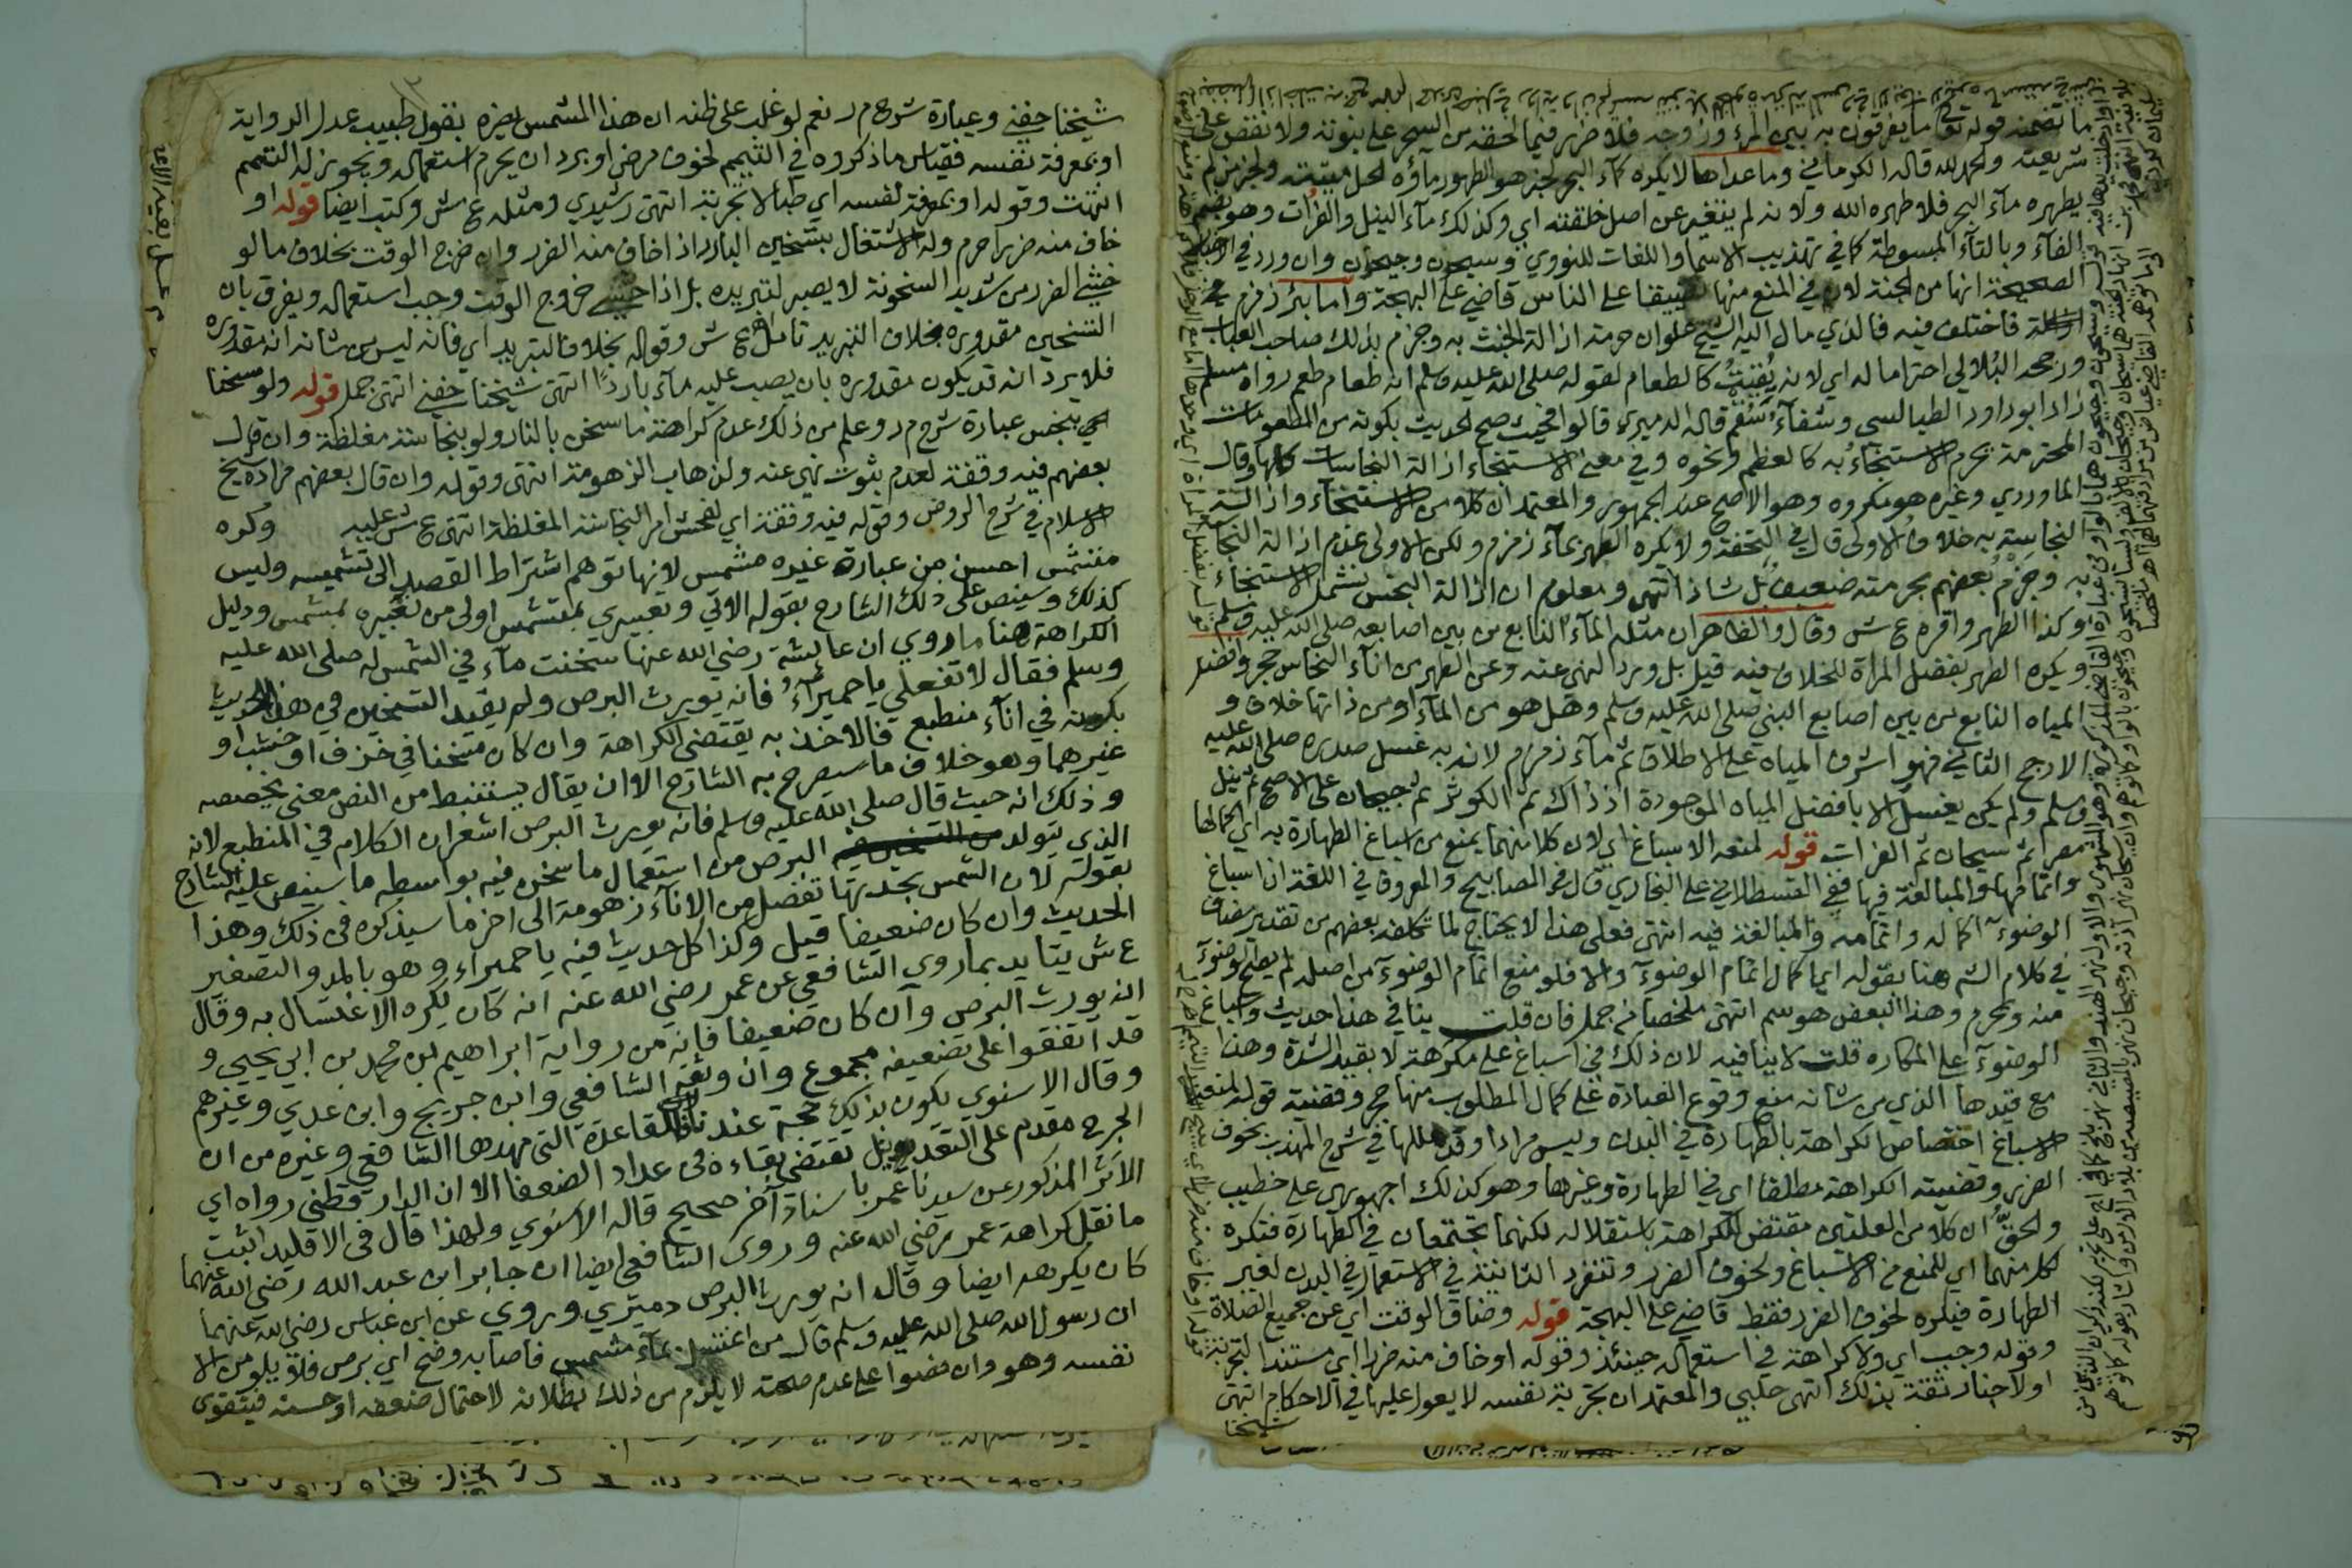 ما تضمنه قوله تعالى ما يفرقون به بين المرء وزوجه فلا ضرر فيما لحقه من السحر على نبوته ولا نقص على
شريعته ولحمد لله قاله الكرماني وما عداها لا يكره كماء البحر لخبر هو الطهور ماؤه الحل ميتته ولخبر من لم
يطهره ماء البحر فلا طهره الله ولانه لم يتغير عن اصل خلقته اي وكذلك ماء النيل والفرات وهو بضم
الفاء وبالتاء المبسوطة كما في تهذيب الاسما واللغات للنووي وسيحون وجيحون وان ورد في الاخبار
الصحيحة انها من الجنة لان في المنع منها تضييقا على الناس قاضي على البهجة واما بئر زمزم في
ازالة فاختلف فيه فالذي مال اليه الشيخ علوان حرمة ازالة الخبث به وجزم بذلك صاحب العباب
ورجحه البُلالي احتراما له اي لانه يُقيتُ كالطعام لقوله صلى الله عليه وسلم انه طعام طعم رواه مسلم
زاد ابو داود الطيالسي وشفاء سقم قاله الدميري قالوا فحيث صح الحديث بكونه من المطعومات
المحترمة يحرم الاستنجاء به كالعظم ونحوه وفي معنى الاستنجاء ازالة النجاسات كلها وقال
الماوردي وغيره هو مكروه وهو الاصح عند الجمهور والمعتمد ان كلا من الاستنجاء وازالة
النجاسة به خلاف الاولى قال في التحفة ولا يكره الطهر بماء زمزم ولكن الاولى عدم ازالة النجاسة
به وجزم بعضهم بحرمته ضعيف بل شاذ انتهى ومعلوم ان ازالة النجس تشمل الاستنجاء
وكذا الطهر واقره ع ش وقال والظاهر ان مثله الماء النابع من بين اصابعه صلى الله عليه وسلم
ويكره الطهر بفضل المراة للخلاف فيه قيل بل ورد النهي عنه وعن الطهر من اناء النحاس حجر وافضل
المياه النابع من بين اصابع النبي صلى الله عليه وسلم وهل هو من الماء او من ذاتها خلاف و
الارجح الثاني فهو اشرف المياه على الاطلاق ثم ماء زمزم لانه به غسل صدره صلى الله عليه
وسلم ولم يكن يغسل الا بافضل المياه الموجودة اذ ذاك ثم الكوثر ثم جيحان على الاصح ثم نيل
مصر ثم سيحان ثم الفرات قوله لمنعه الاسباغ اي لان كلا منهما يمنع من اسباغ الطهارة به اي اكمالها
واتمامها والمبالغة فيها ففي القسطلاني على البخاري قال في المصابيح والمعروف في اللغة ان اسباغ
الوضوء اكماله واتمامه والمبالغة فيه انتهى فعلى هذا لا يحتاج لما تكلفه بعضهم من تقدير مضاف
في كلام الشم هنا بقوله اي كمال اتمام الوضوء والا فلو منع اتمام الوضوء من اصله لم يصح الوضوء
منه وحرم وهذا البعض هو سم انتهى ملخصا من جمل فان قلت ينافي هذا حديث واسباغ
الوضوء على المكاره قلت لا ينافيه لان ذلك في اسباغ على مكرهة لا بقيد الشدة وهذا
مع قيدها الذي من شانه منع وقوع العبادة على كمال المطلوب منها حج وقضية قوله لمنعه
الاسباغ اختصاص الكراهة بالطهارة في البدن وليس مرادا وقد عللها في شرح المهذب بخوف
الضرر وقضيته الكراهة مطلقا اي في الطهارة وغيرها وهو كذلك اجهوري على خطيب
والحقُّ ان كلا من العلتين مقتض للكراهة باستقلاله لكنهما تجتمعان في الطهارة فتكره
لكل منهما اي للمنع من الاسباغ ولخوف الضرر وتنفرد الثانية في الاستعمال في البدن لغير
الطهارة فيكره لخوف الضرر فقط قاضي على البهجة قوله وضاق الوقت اي عن جميع الصلاة
وقوله وجب اي ولا كراهة في استعماله حينئذ وقوله او خاف منه ضررا اي مستندا لتجربة
او لاخبار ثقة بذلك انتهى حلبي والمعتمد ان تجربة نفسه لا يعول عليها في الاحكام انتهى
شيخنا
شيخنا حفني وعبارة شرح م ر نعم لو غلب على ظنه ان هذا المشمس يضره بقول طبيب عدل الرواية
او بمعرفة نفسه فقياس ما ذكروه في التيمم لخوف مرض او برد ان يحرم استعماله ويجوز له التيمم
انتهت وقوله او بمعرفة نفسه اي طبا لا تجربة انتهى رشيدي ومثله ع ش وكتب ايضا قوله او
خاف منه ضررا حرم وله الاشتغال بتسخين البارد اذا خاف منه الضرر وان خرج الوقت بخلاف ما لو
خشي الضرر من شديد السخونة لا يصبر لتبريده بل اذا خشي خروج الوقت وجب استعماله ويفرق بان
التسخين مقدوره بخلاف التبريد تامل ع ش وقوله بخلاف التبريد اي فانه ليس من شانه انه مقدوره
فلا يرد انه قد يكون مقدوره بان يصب عليه ماء باردًا انتهى شيخنا حفني انتهى جمل قوله ولو سخنا
بنجس عبارة شرح م ر وعلم من ذلك عدم كراهة ما سخن بالنار ولو بنجاسة مغلظة وان قال
بعضهم فيه وقفة لعدم ثبوت نهي عنه ولذهاب الزهومة انتهى وقوله وان قال بعضهم مراده شيخ
الاسلام في شرح الروض وقوله فيه وقفة اي لفحش امر النجاسة المغلظة انتهى ع ش عليه وكره
متشمس احسن من عبارة غيره مشمس لانها توهم اشتراط القصد الى تشميسه وليس
كذلك وسينص على ذلك الشارح بقوله الاتي وتعبيري بمتشمس اولى من تعبيره بمشمس ودليل
الكراهة هنا ما روي ان عائشة رضي الله عنها سخنت ماء في الشمس له صلى الله عليه
وسلم فقال لا تفعلي يا حميراءُ فانه يورث البرص ولم يقيد التسخين في هذا الحديث
بكونه في اناء منطبع فالاخذ به يقتضي الكراهة وان كان مسخنا في خزف او خشب او
غيرهما وهو خلاف ما سيصرح به الشارح الا ان يقال يستنبط من النص معنى يخصصه
وذلك انه حيث قال صلى الله عليه وسلم فانه يورث البرص اشعر ان الكلام في المنطبع لانه
الذي يتولد البرص من استعمال ما سخن فيه بواسطة ما سينص عليه الشارح
بقوله لان الشمس بحدتها تفصل من الاناء زهومة الى اخر ما سيذكره في ذلك وهذا
الحديث وان كان ضعيفا قيل وكذا كل حديث فيه يا حميراء وهو بالمد والتصغير
ع ش يتايد بما روى الشافعي عن عمر رضي الله عنه انه كان يكره الاغتسال به وقال
انه يورث البرص وان كان ضعيفا فانه من رواية ابراهيم بن محمد بن ابي يحيى و
قد اتفقوا على تضعيفه مجموع وان وثقه الشافعي وابن جريج وابن عدي وغيرهم
وقال الاسنوي يكون بذلك حجة عندنا لكن القاعدة التي مهدها الشافعي وغيره من ان
الجرح مقدم على التعديل تقتضي بقاءه في عداد الضعفا الا ان الدارقطني رواه اي
الاثر المذكور عن سيدنا عمر باسناد آخر صحيح قاله الاسنوي ولهذا قال في الاقليد اثبت
ما نقل كراهة عمر رضي الله عنه وروى الشافعي ايضا ان جابر ابن عبد الله رضي الله عنهما
كان يكرهه ايضا وقال انه يورث البرص دميري وروي عن ابن عباس رضي الله عنهما
ان رسول الله صلى الله عليه وسلم قال من اغتسل بماء مشمس فاصابه وضح اي برص فلا يلومن الا
نفسه وهو وان نصوا على عدم صحته لا يلزم من ذلك بطلانه لاحتمال ضعفه او حسنه فيتقوى